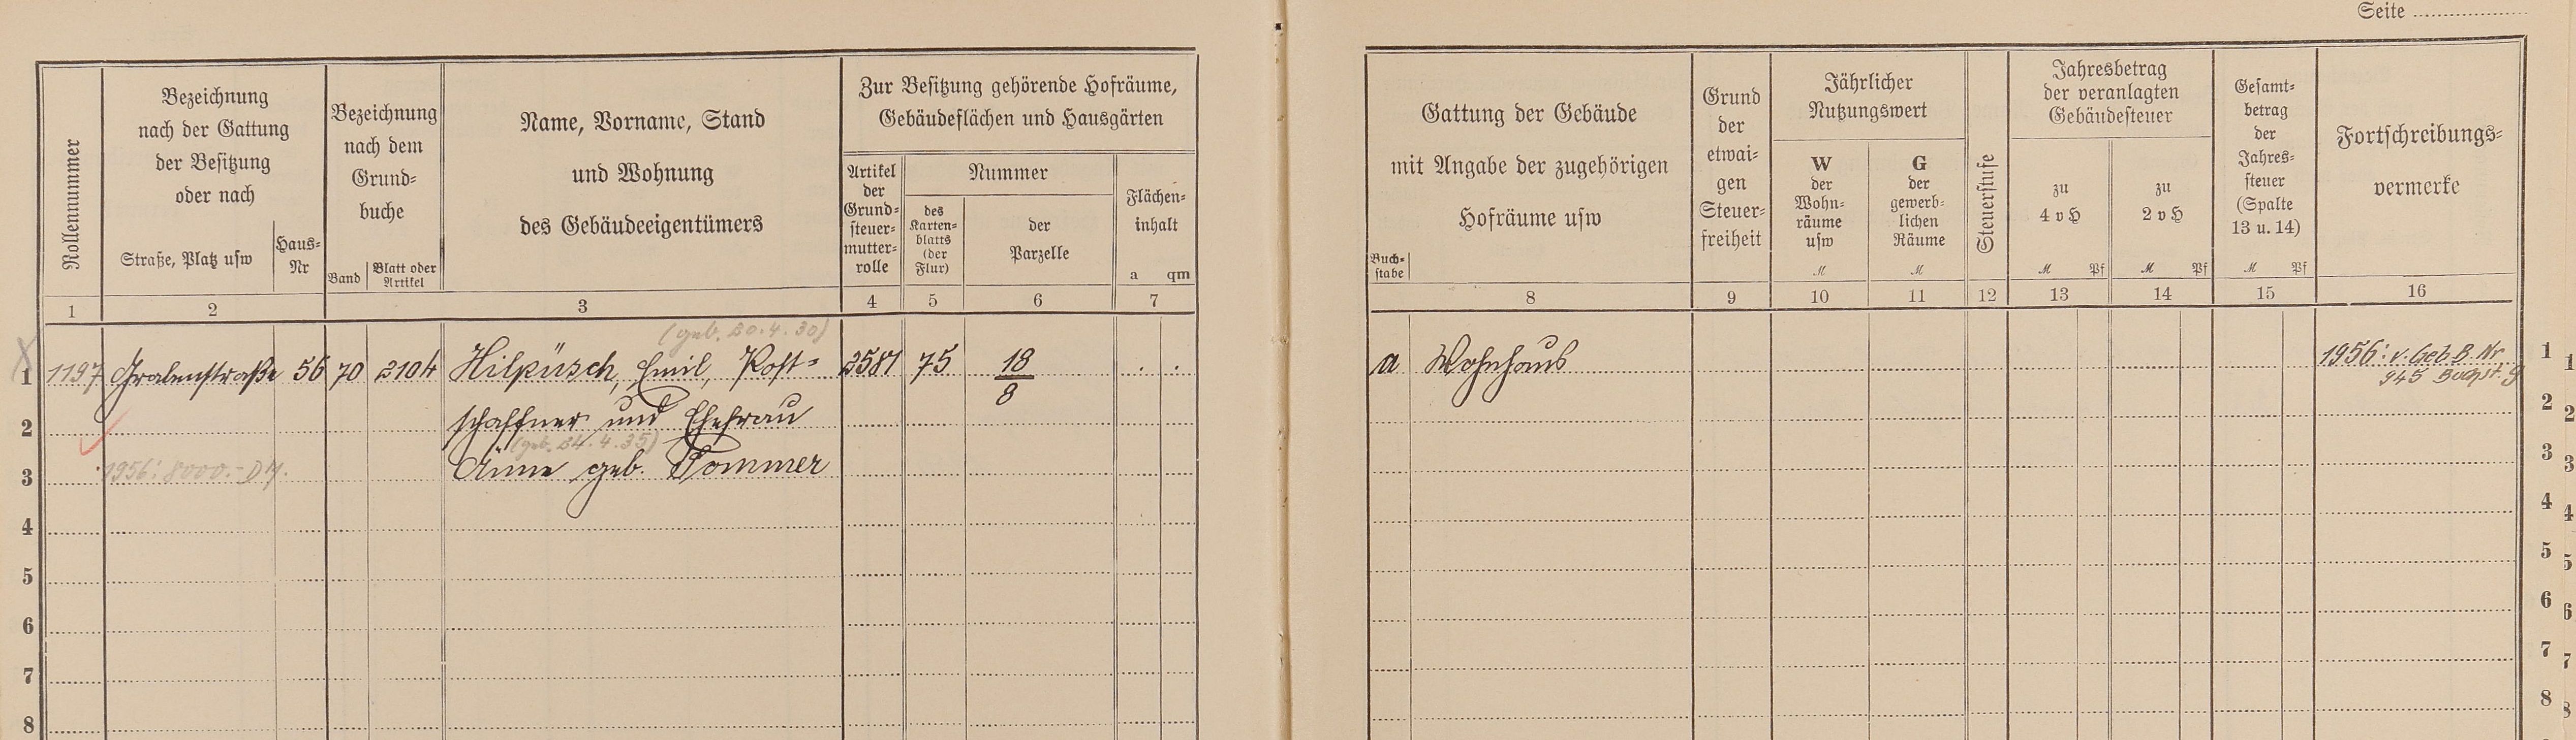 Seite
Rollennummer
Bezeichnung
nach der Gattung
der Besitzung
oder nach
Straße, Platz usw
Haus-
Nr
Bezeichnung
nach dem
Grund-
buche
Band
Blatt oder
Artikel
Name, Vorname, Stand
und Wohnung
des Gebäudeeigentümers
Zur Besitzung gehörende Hofräume,
Gebäudeflächen und Hausgärten
Artikel
der
Grund-
steuer-
mutter-
rolle
Nummer
des
Karten-
blatts
(der
Flur)
der
Parzelle
Flächen-
inhalt
a qm
1 2 3 4 5 6 7
Gattung der Gebäude
mit Angabe der zugehörigen
Hofräume usw
Buch-
stabe
Grund
der
etwai-
gen
Steuer-
freiheit
Jährlicher
Nutzungswert
W
der
Wohn-
räume
usw
M
G
der
gewerb-
lichen
Räume
M
Steuerstufe
Jahresbetrag
der veranlagten
Gebäudesteuer
zu
4 v H
M Pf
zu
2 v H
M Pf
Gesamt-
betrag
der
Jahres-
steuer
(Spalte
13 u. 14)
M Pf
Fortschreibungs-
vermerke
8 9 10 11 12 13 14 15 16
(geb. 20.4.30)
1 1197 Grabenstraße 56 70 2104 Hilpüsch, Emil, Post= 2581 75 18/8 . . a Wohnhaus 1956: v. Geb. B. Nr 1
945 Buchst. g
2 schaffner und Ehefrau 2
(geb. 24.4.35)
3 1956: 8000.- DM. Änne geb. Pommer 3
4 4
5 5
6 6
7 7
8 8